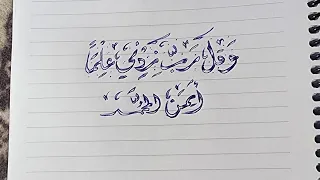 وَقُل رَّبِّ زِدْنِي عِلْمًا
أيمن المحمد